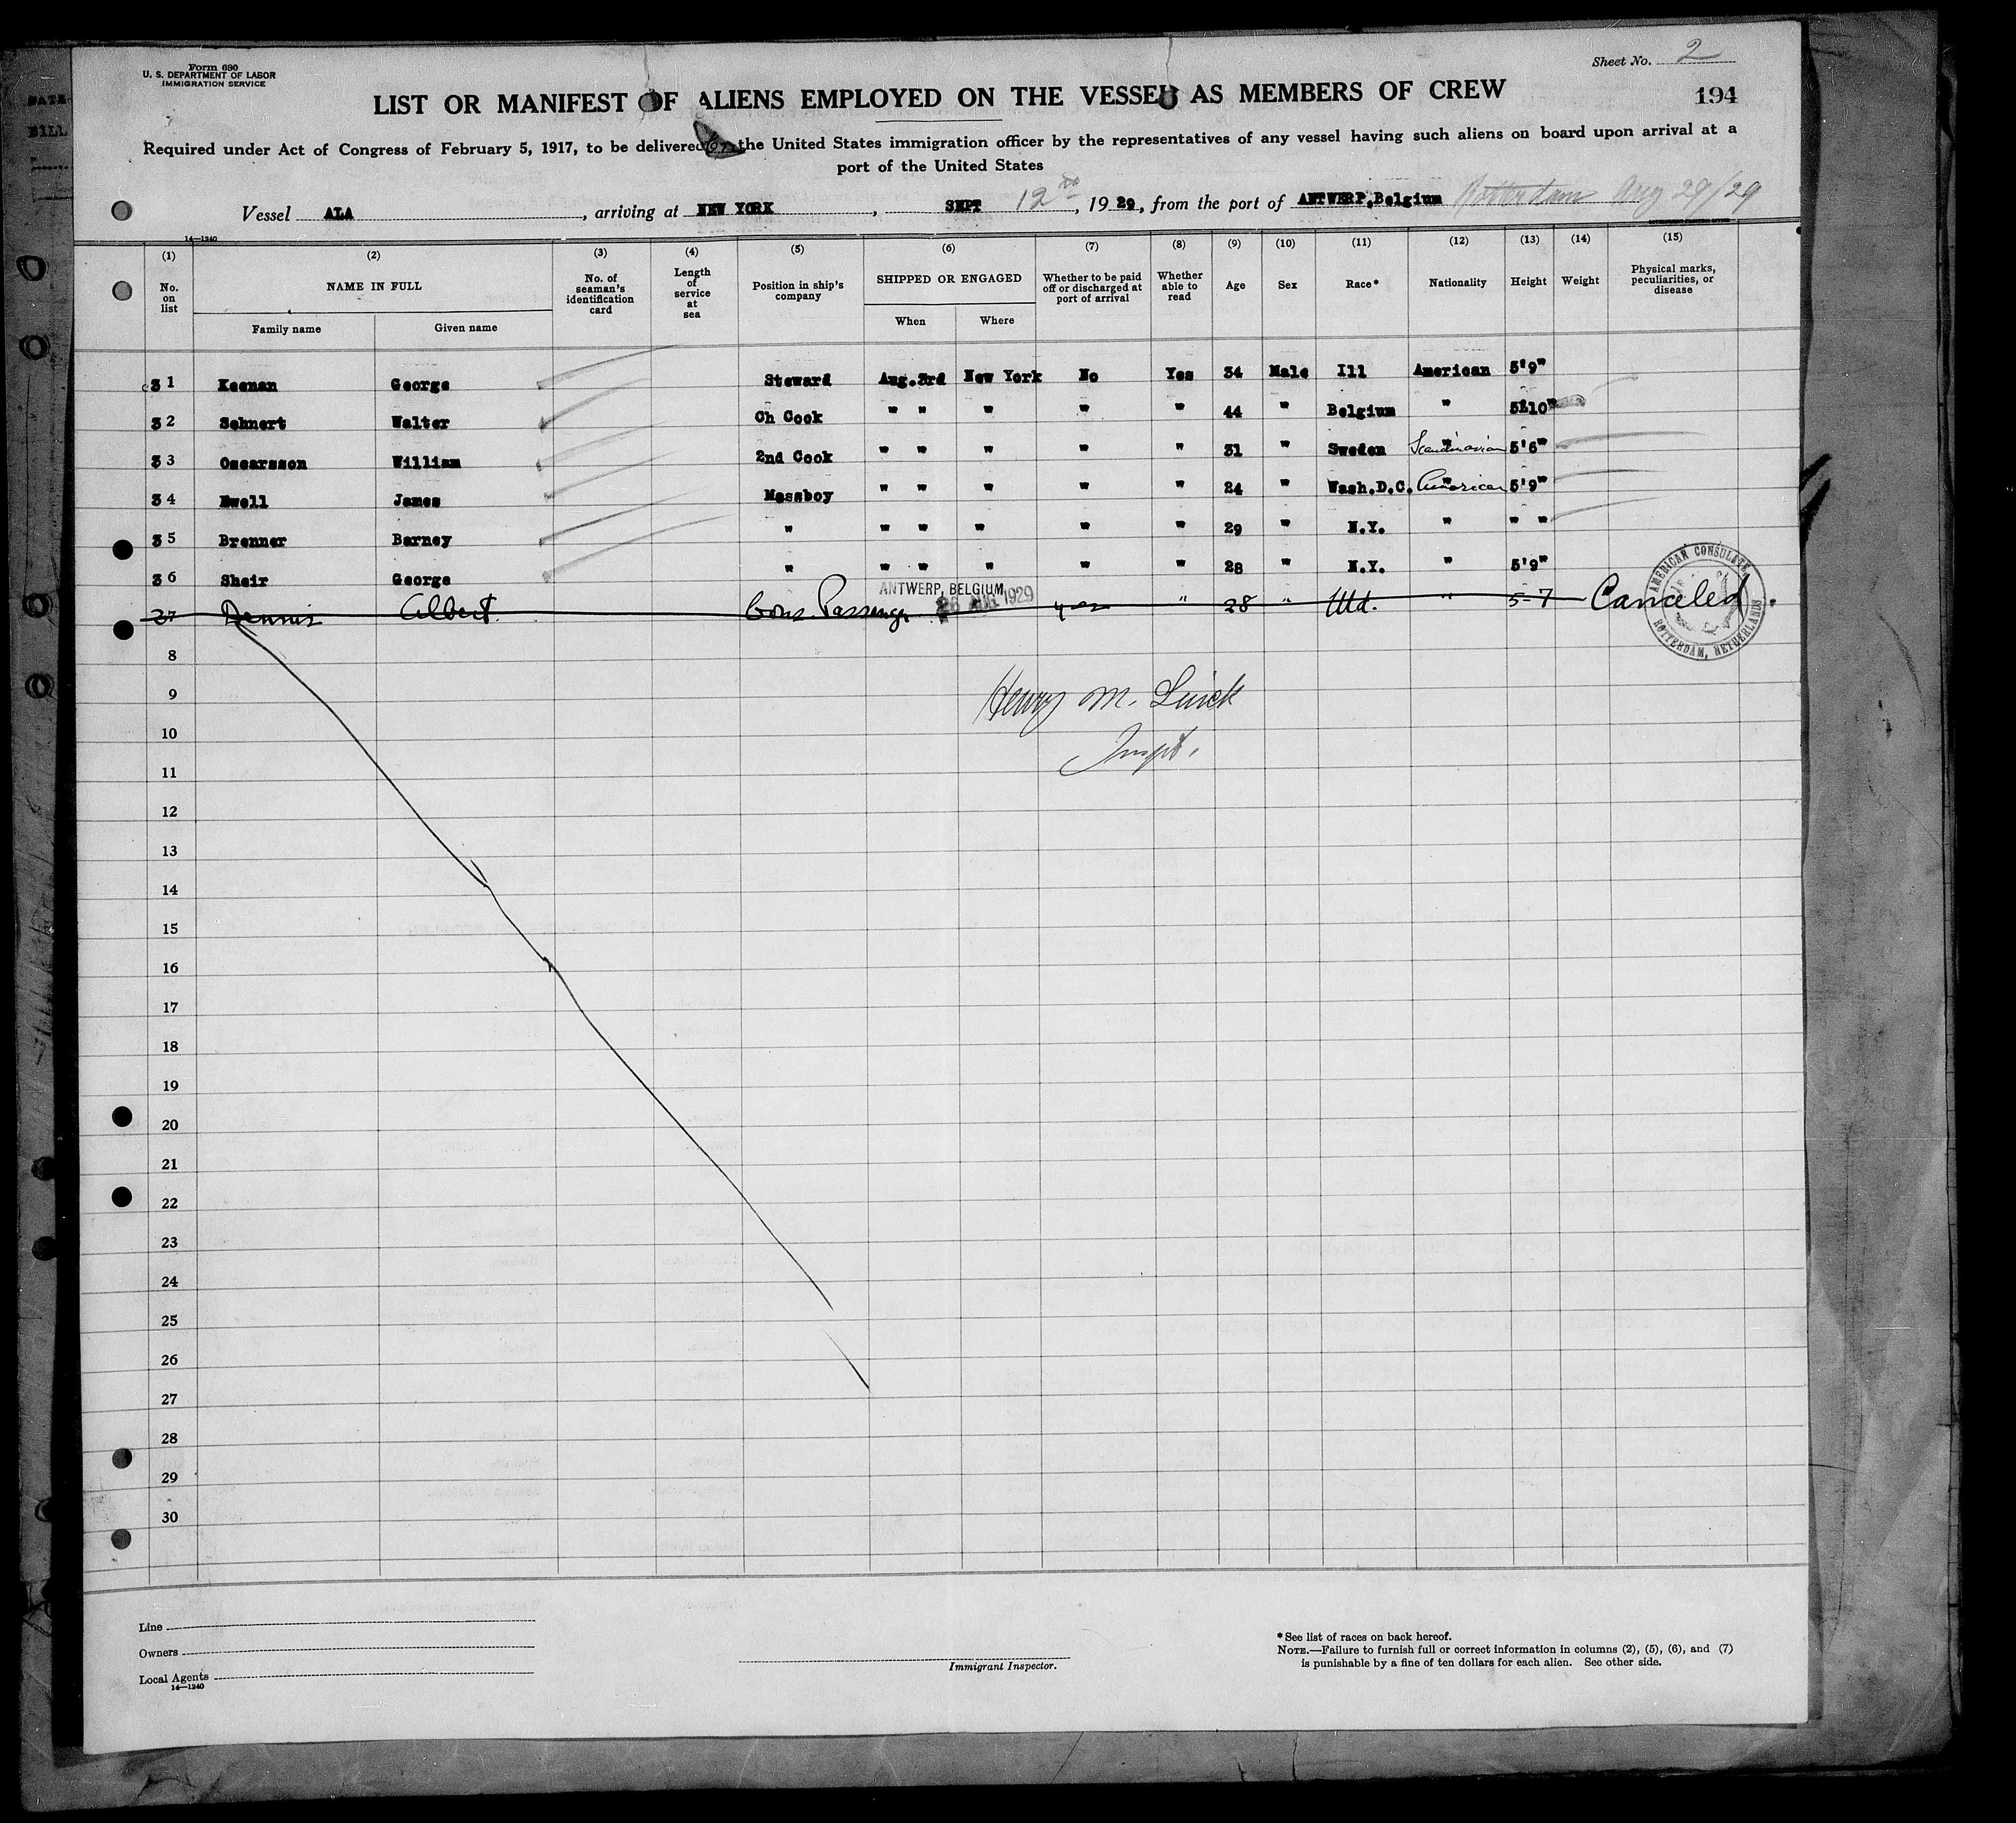 Form 680
U. S. DEPARTMENT OF LABOR
IMMIGRATION SERVICE
Sheet No. 2
LIST OR MANIFEST OF ALIENS EMPLOYED ON THE VESSEL AS MEMBERS OF CREW
194
Required under Act of Congress of February 5, 1917, to be delivered to the United States immigration officer by the representatives of any vessel having such aliens on board upon arrival at a
port of the United States
Vessel ALA, arriving at NEW YORK, SEPT 12, 1929, from the port of ANTWERP, Belgium Rotterdam Aug 29/29
14—1240
(1) (2) (3) (4) (5) (6) (7) (8) (9) (10) (11) (12) (13) (14) (15)
No. on list NAME IN FULL No. of seaman's identification card Length of service at sea Position in ship's company SHIPPED OR ENGAGED Whether to be paid off or discharged at port of arrival Whether able to read Age Sex Race* Nationality Height Weight Physical marks, peculiarities, or disease
Family name Given name When Where
31 Keenan George Steward Aug.3rd New York No Yes 34 Male Ill American 5'9"
32 Sehnert Walter Ch Cook " " " " " 44 " Belgium " 5'10"
33 Oscarsson William 2nd Cook " " " " " 31 " Sweden Scandinavian 5'6"
34 Ewell James Messboy " " " " " 24 " Wash.D.C. American 5'9"
35 Brenner Barney " " " " " " 29 " N.Y. " " "
36 Sheir George " " " " " " 28 " N.Y. " 5'9"
ANTWERP, BELGIUM
26 AUG 1929
37 Dennis Albert Cons. Passenger yes " 28 " Md. " 5-7 Canceled.
AMERICAN CONSULATE
ROTTERDAM, NETHERLANDS
8
9
Henry M.
10
Inspt.
11
12
13
14
15
16
17
18
19
20
21
22
23
24
25
26
27
28
29
30
Line
Owners
Local Agents
14—1240
Immigrant Inspector.
*See list of races on back hereof.
NOTE.—Failure to furnish full or correct information in columns (2), (5), (6), and (7)
is punishable by a fine of ten dollars for each alien. See other side.